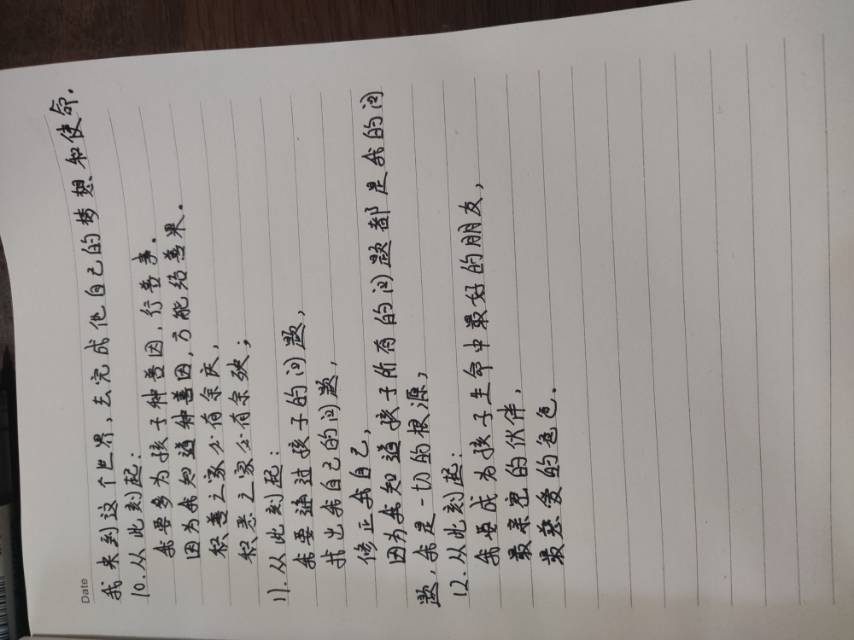 Date
我来到这个世界,去完成他自己的梦想和使命.
10.从此刻起:
我要多为孩子种善因,行善事.
因为我知道种善因,方能结善果。
积善之家必有余庆,
积恶之家必有余殃;
11.从此刻起:
我要通过孩子的问题,
找出我自己的问题,
修正我自己,
因为我知道孩子所有的问题都是我的问
题,我是一切的根源;
12.从此刻起:
我要成为孩子生命中最好的朋友,
最亲密的伙伴,
最慈爱的爸爸.